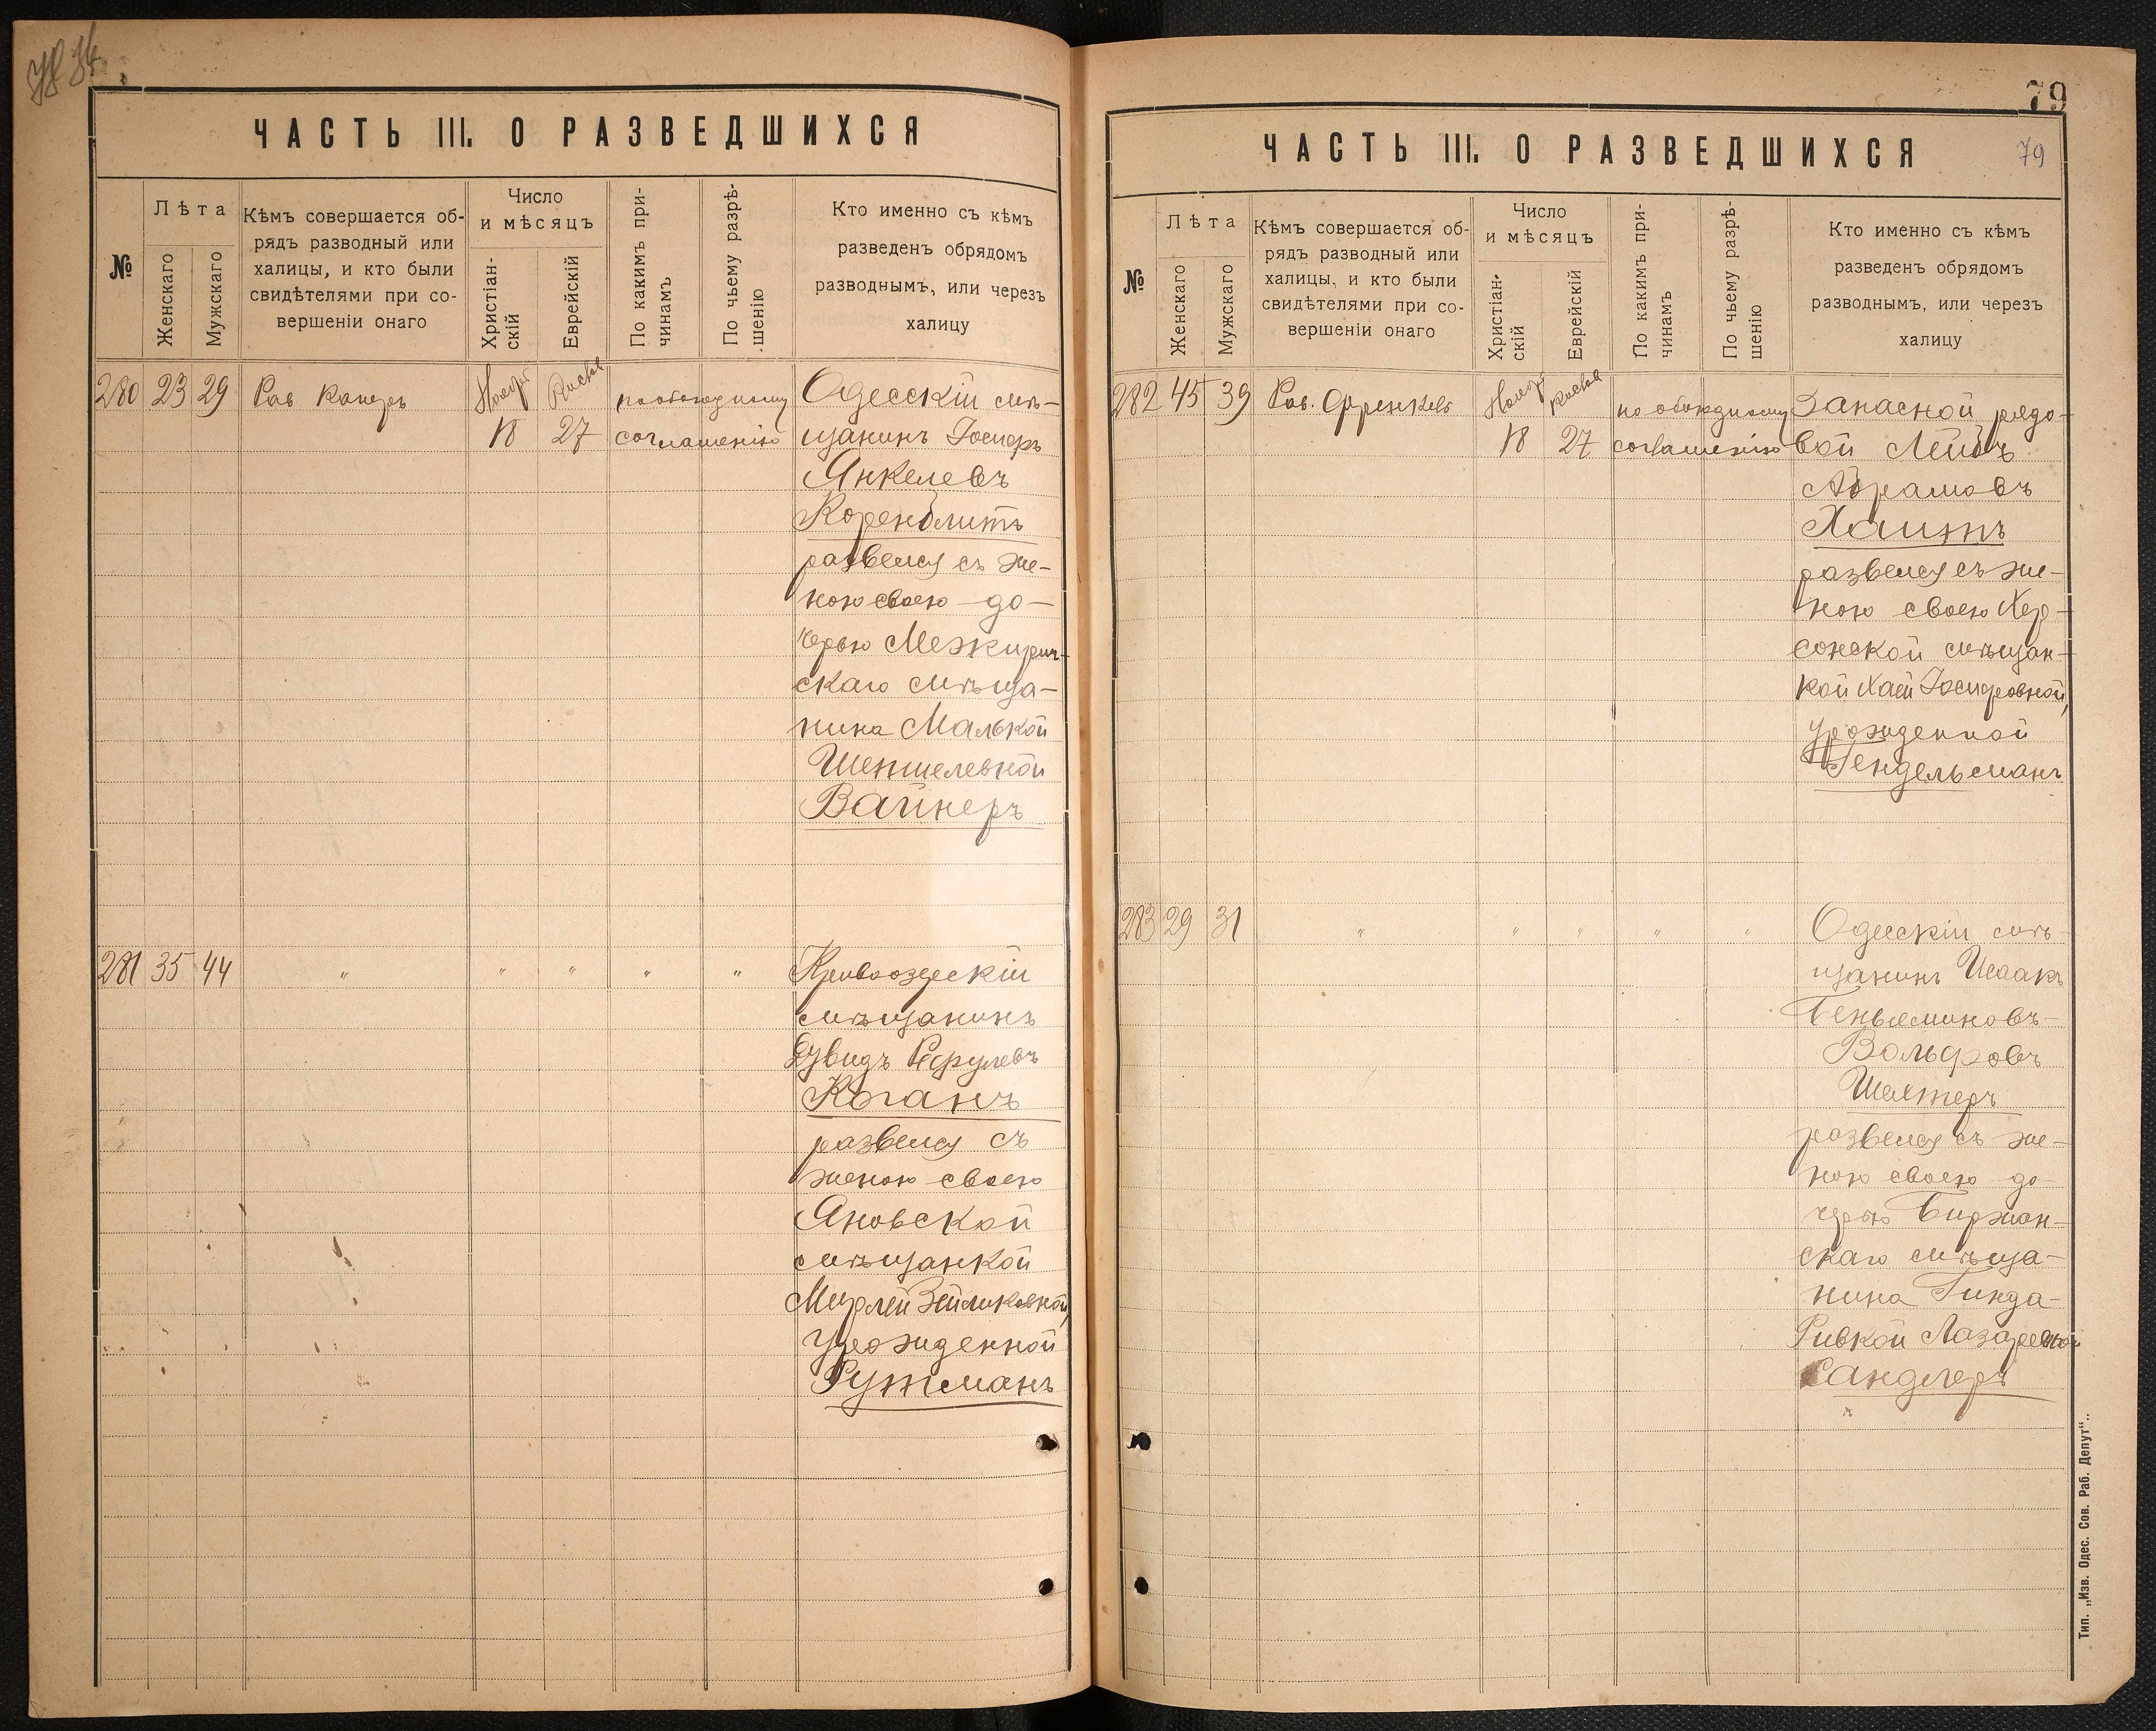 ЧАСТЬ III. О РАЗВЕДШИХСЯ
№
Лѣта
Женскаго
Мужскаго
Кѣмъ совершается об-
рядъ разводный или
халицы, и кто были
свидѣтелями при со-
вершеніи онаго
Число
и мѣсяцъ
Христіан-
скій
Еврейскій
По какимъ при-
чинамъ
По чьему разрѣ-
шенію
Кто именно съ кѣмъ
разведенъ обрядомъ
разводнымъ, или черезъ
халицу
280 23 29 Рав Ноябр Кислев по обоюдному Одесскій мѣ-
18 27 соглашенію щанинъ Іосифъ
Янкелевъ
Коренблитъ
развелся съ же-
ною своею до-
черью Межирич-
скаго мѣща-
нина Малькой
Шепшелевной
Вайнеръ
281 35 44 " " " " " Кривоозерскій
мѣщанинъ
Дувидъ
Коганъ
развелся съ
женою своею
Яновской
мѣщанкой
Мирлей Зейликовной,
урожденной
Рутманъ
79
ЧАСТЬ III. О РАЗВЕДШИХСЯ
79
№
Лѣта
Женскаго
Мужскаго
Кѣмъ совершается об-
рядъ разводный или
халицы, и кто были
свидѣтелями при со-
вершеніи онаго
Число
и мѣсяцъ
Христіан-
скій
Еврейскій
По какимъ при-
чинамъ
По чьему разрѣ-
шенію
Кто именно съ кѣмъ
разведенъ обрядомъ
разводнымъ, или черезъ
халицу
282 45 39 Рав. Френкель Ноябр Кислев по обоюдному Запасной рядо-
18 27 соглашенію вой Лейбъ
Абрамовъ
Хаитъ
развелся съ же-
ною своею Хер-
сонской мѣщан-
кой Хаей Іосифовной,
урожденной
Гендельсманъ
283 29 31 " " " " " Одесскій мѣ-
щанинъ Исаакъ
Беньяминовъ-
Вольфовъ
Шехтеръ
развелся съ же-
ною своею до-
черью Биржан-
скаго мѣща-
нина Гинда-
Ривкой Лазаревной
Сандлеръ
Тип. „Изв. Одес. Сов. Раб. Депут“.